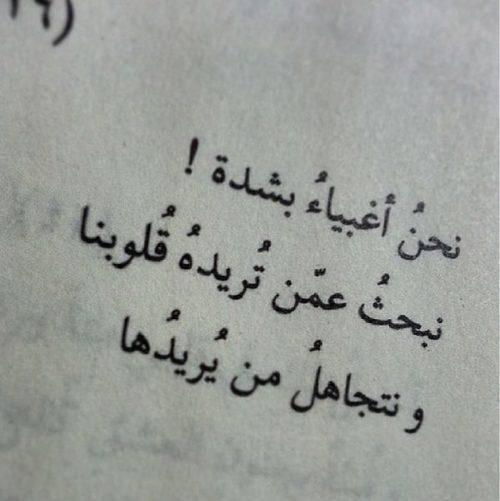 (١٦
نحنُ أغبياءُ بشدة !
نبحثُ عمّن تُريدهُ قُلوبنا
و نتجاهلُ من يُريدُها